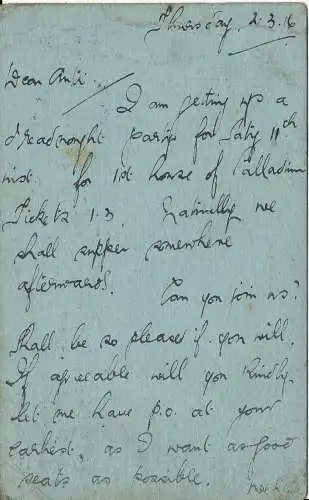 Thursday, 2.3.16
Dear Anti.
I am getting up a
dreadnought party for Satdy 11th
inst. for 1st house of Palladium
Tickets 1.3. Naturally we
shall supper somewhere
afterwards. Can you join us?
Shall be so pleased if you will.
If agreeable will you kindly
let me have p.o. at your
earliest, as I want as good
seats as possible.